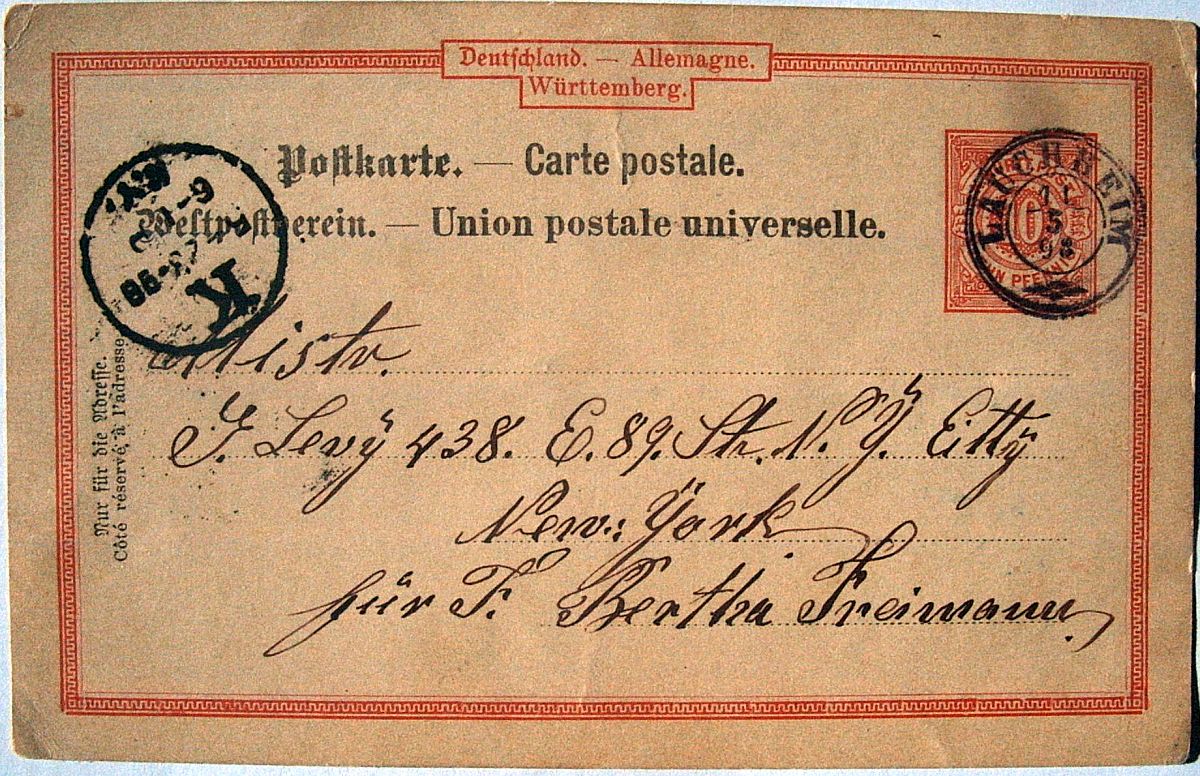 Deutschland. — Allemagne.
Württemberg.
Postkarte. — Carte postale.
Weltpostverein. — Union postale universelle.
LAUCHHEIM
11
5
98
PFENNIG
K
98
N.Y.
Nur für die Adresse.
Côté réservé à l'adresse.
Mistr.
J. Levÿ 438. E. 89. Str. N. Ÿ. Cittÿ
New: Ÿork
für F. Bertha Freimann.